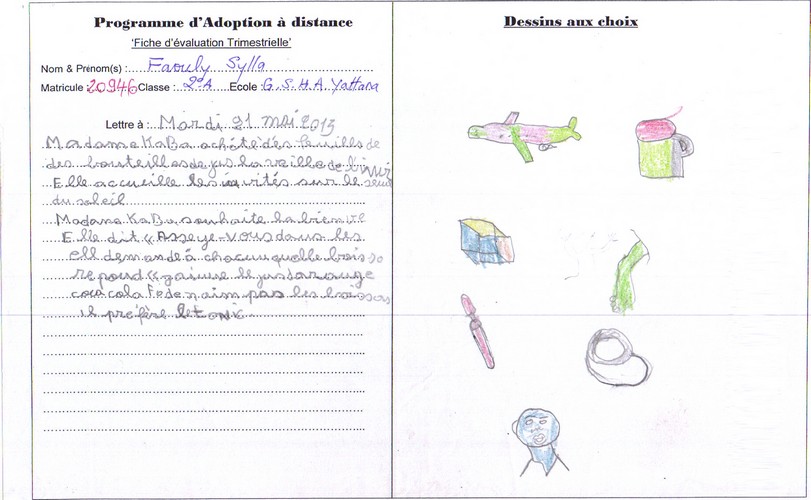 Programme d'Adoption à distance
'Fiche d'évaluation Trimestrielle'
Nom & Prénom(s) :....Faouly Sylla
Matricule :20946 Classe :..2°A Ecole G.S.H.A. Yattara
Lettre à :...Mardi 21 mai 2013
Madame KaBa achète des
des bouteilles de jus la veille de
Elle accueille les invités sur le seui
du soleil
Madame KaBa souhaite la bienve
Elle dit « Asseye-vous dans les
ell demande à chacun quelle boisso
repond « jaime le jus darange
coca cola Fode naim pas les boissons
il préfère le tonic
Dessins aux choix